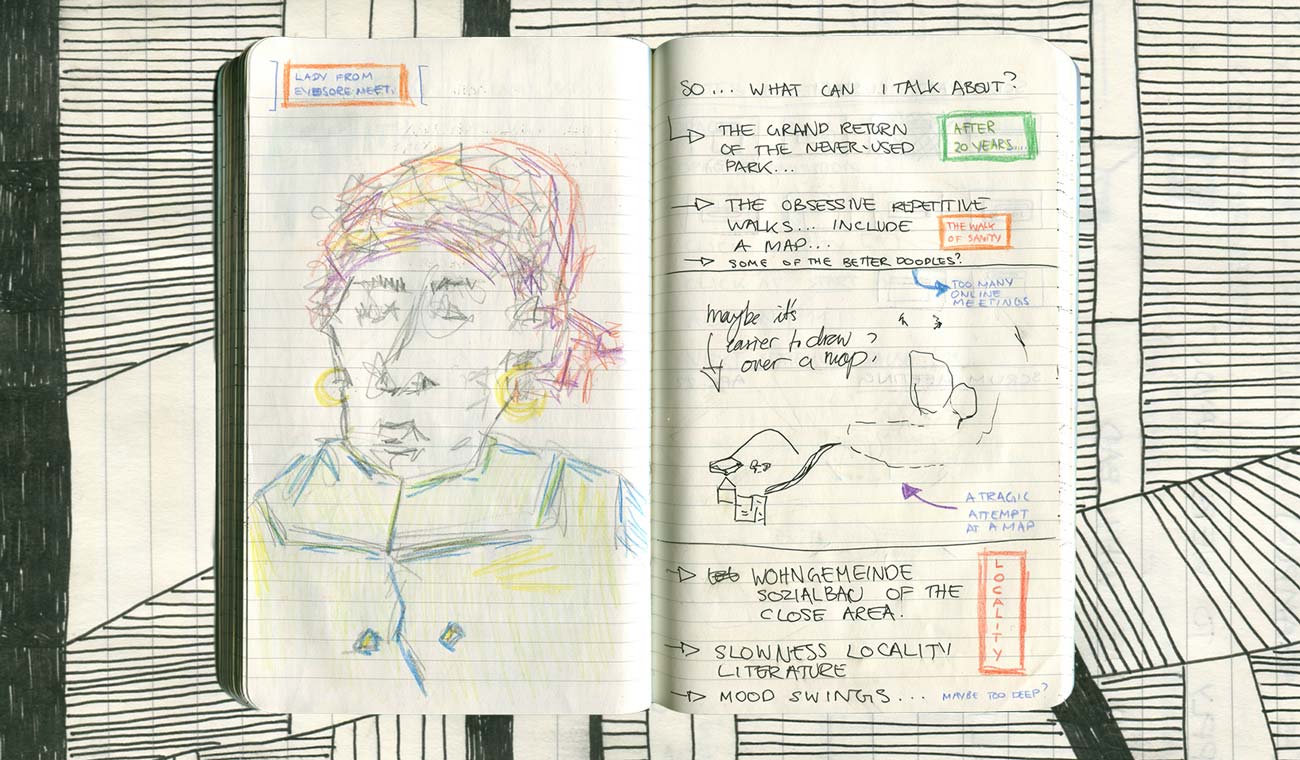 LADY FROM
EYESORE MEET.
SO... WHAT CAN I TALK ABOUT?
THE GRAND RETURN
OF THE NEVER-USED
PARK...
AFTER
20 YEARS....
THE OBSESSIVE REPETITIVE
WALKS... INCLUDE
A MAP...
THE WALK
OF SANITY
SOME OF THE BETTER DOODLES?
TOO MANY
ONLINE
MEETINGS
maybe it's
easier to draw
over a map.
A TRAGIC
ATTEMPT
AT A MAP
WOHNGEMEINDE
SOZIALBAU OF THE
CLOSE AREA.
LOCALITY
SLOWNESS LOCALITY
LITERATURE
MOOD SWINGS... MAYBE TOO DEEP?